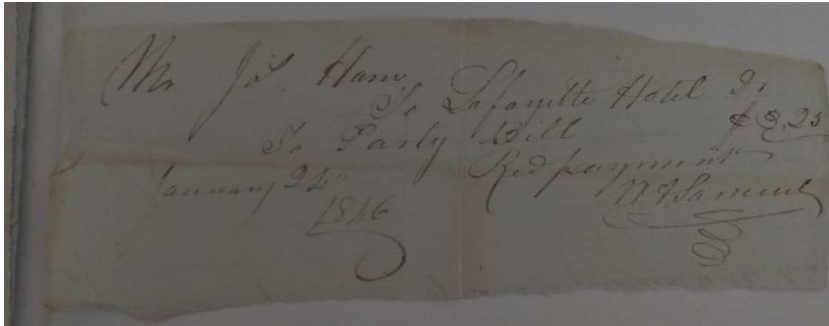 Mr Jas. Ham
To Lafayette Hotel Dr.
To Party Bill $ 2.25
January 24th Recd payment
1846 Samuel